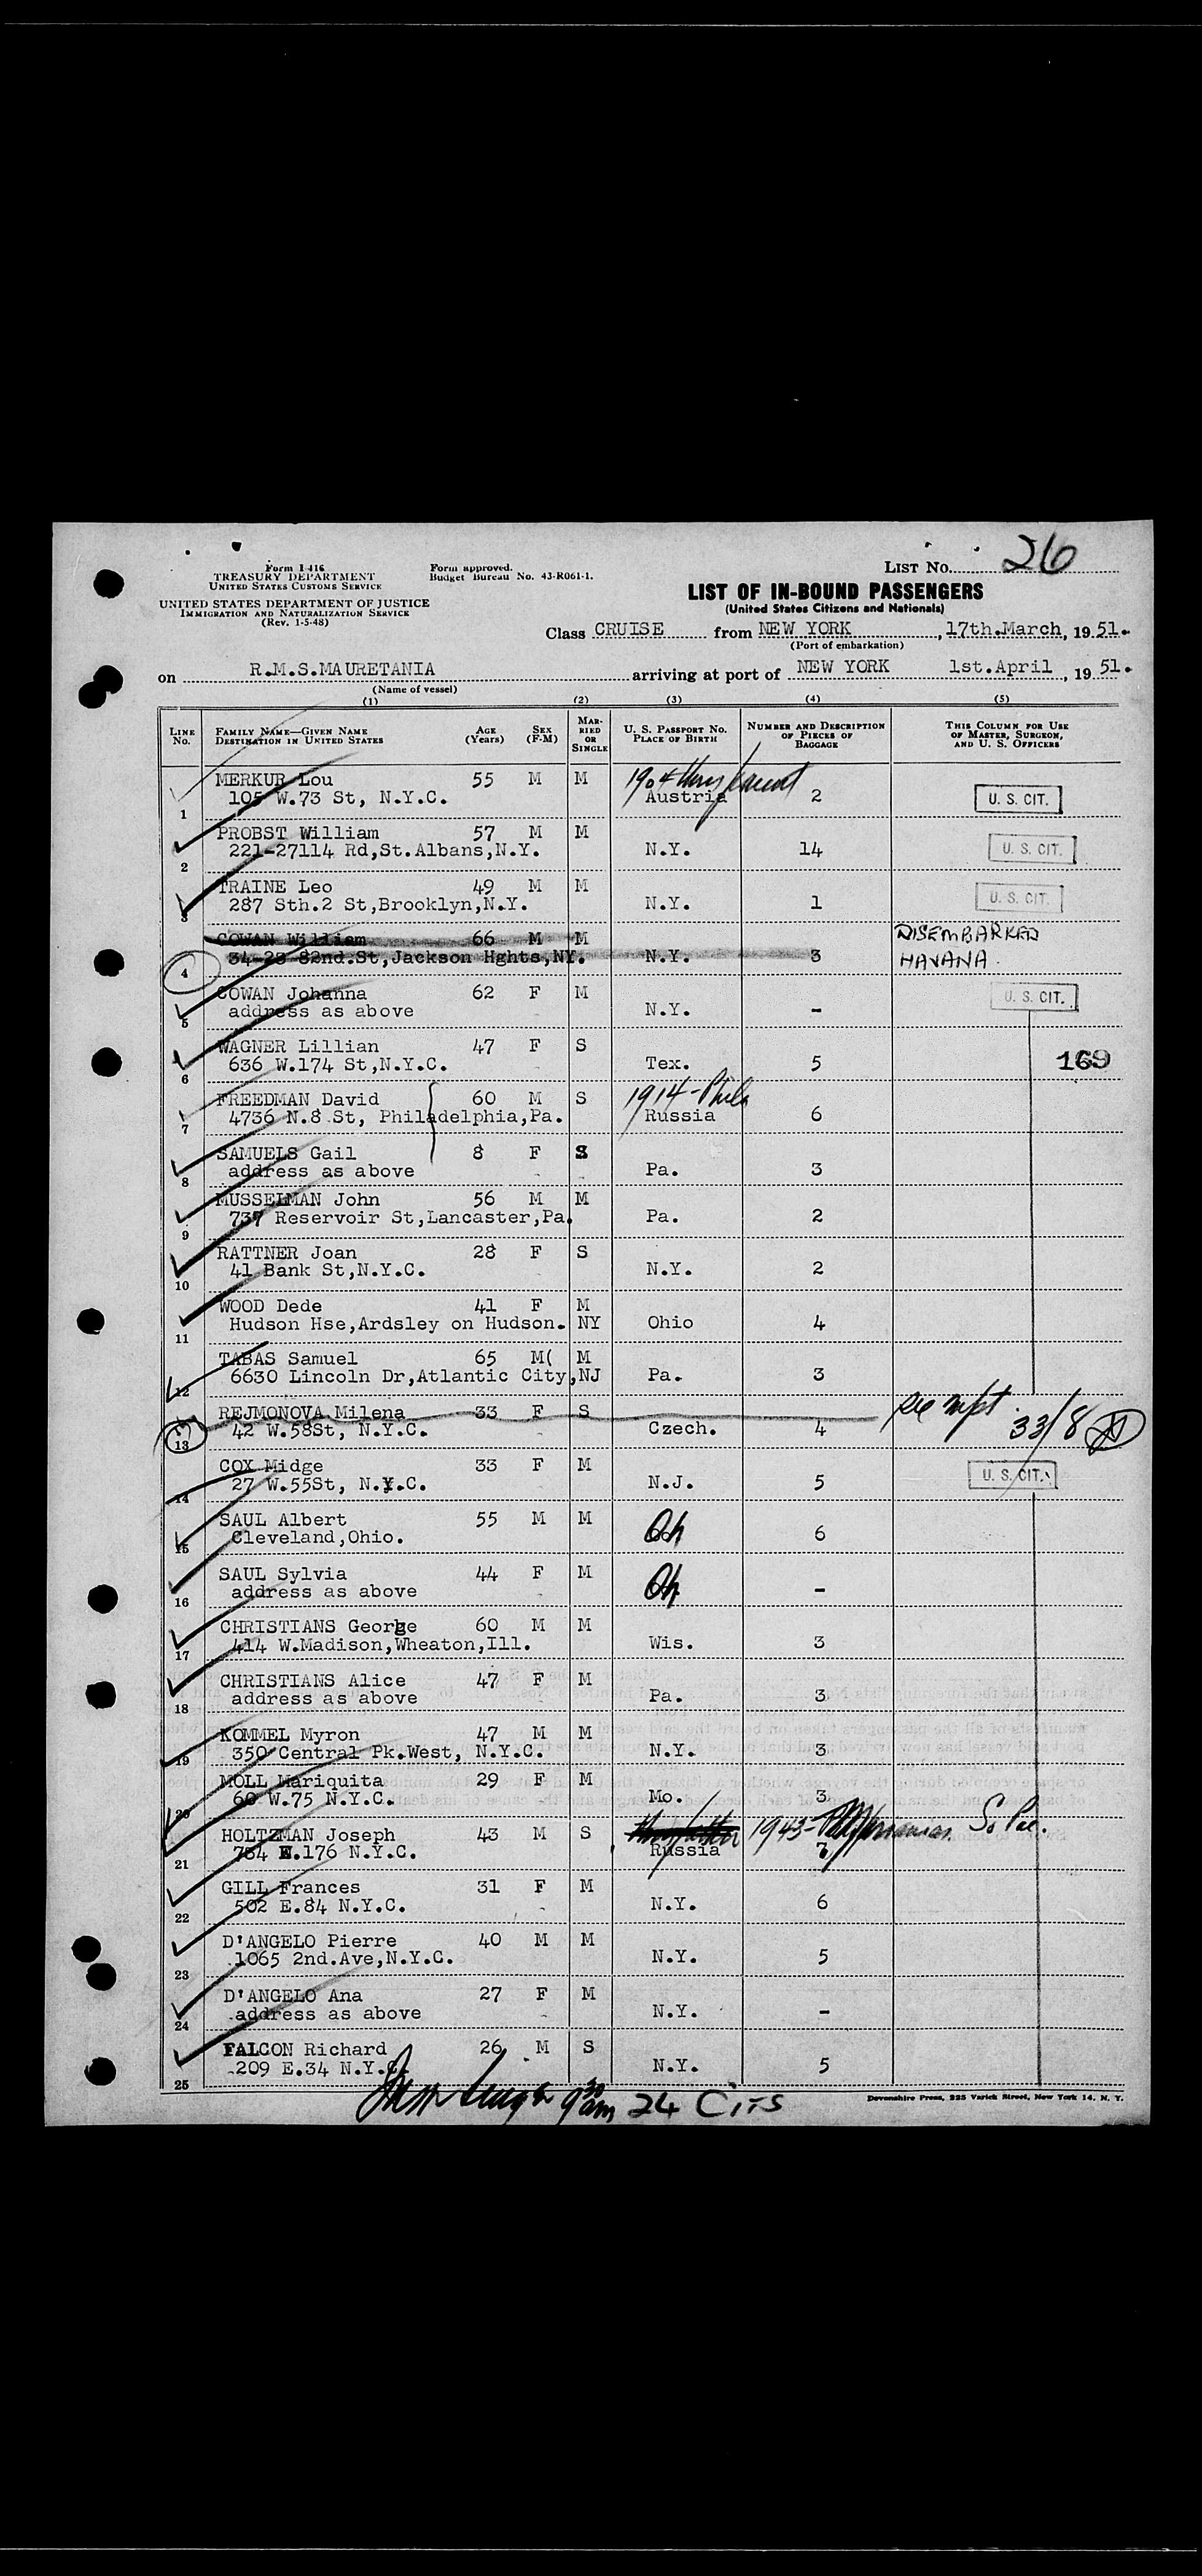 Form I-416
TREASURY DEPARTMENT
UNITED STATES CUSTOMS SERVICE
UNITED STATES DEPARTMENT OF JUSTICE
IMMIGRATION AND NATURALIZATION SERVICE
(Rev. 1-5-48)
Form approved.
Budget Bureau No. 43-R061-1.
LIST No. 26
LIST OF IN-BOUND PASSENGERS
(United States Citizens and Nationals)
Class CRUISE from NEW YORK, 17th.March, 1951.
(Port of embarkation)
on R.M.S.MAURETANIA arriving at port of NEW YORK 1st.April, 1951.
(Name of vessel)
(1) (2) (3) (4) (5)
LINE No. FAMILY NAME—GIVEN NAME DESTINATION IN UNITED STATES AGE (Years) SEX (F-M) MARRIED OR SINGLE U. S. PASSPORT NO. PLACE OF BIRTH NUMBER AND DESCRIPTION OF PIECES OF BAGGAGE THIS COLUMN FOR USE OF MASTER, SURGEON, AND U. S. OFFICERS
MERKUR Lou 55 M M 1904
1 105 W.73 St, N.Y.C. Austria 2 U. S. CIT.
PROBST William 57 M M
2 221-27114 Rd,St.Albans,N.Y. N.Y. 14 U. S. CIT.
TRAINE Leo 49 M M
3 287 Sth.2 St,Brooklyn,N.Y. N.Y. 1 U. S. CIT.
COWAN William 66 M M DISEMBARKED
4 34-28 82nd.St,Jackson Hghts,NY. N.Y. 3 HAVANA
COWAN Johanna 62 F M U. S. CIT.
5 address as above N.Y. -
WAGNER Lillian 47 F S
6 636 W.174 St,N.Y.C. Tex. 5 169
FREEDMAN David 60 M S 1914-Phila
7 4736 N.8 St, Philadelphia,Pa. Russia 6
SAMUELS Gail 8 F S
8 address as above Pa. 3
MUSSELMAN John 56 M M
9 737 Reservoir St,Lancaster,Pa. Pa. 2
RATTNER Joan 28 F S
10 41 Bank St,N.Y.C. N.Y. 2
WOOD Dede 41 F M
11 Hudson Hse,Ardsley on Hudson. NY Ohio 4
TABAS Samuel 65 M( M
12 6630 Lincoln Dr,Atlantic City,NJ Pa. 3
REJMONOVA Milena 33 F S
13 42 W.58St, N.Y.C. Czech. 4 33/8
COX Midge 33 F M
14 27 W.55St, N.Y.C. N.J. 5 U. S. CIT.
SAUL Albert 55 M M Oh
15 Cleveland,Ohio. 6
SAUL Sylvia 44 F M Oh
16 address as above -
CHRISTIANS George 60 M M
17 414 W.Madison,Wheaton,Ill. Wis. 3
CHRISTIANS Alice 47 F M
18 address as above Pa. 3
KOMMEL Myron 47 M M
19 350 Central Pk.West, N.Y.C. N.Y. 3
MOLL Mariquita 29 F M
20 60 W.75 N.Y.C. Mo. 3
HOLTZMAN Joseph 43 M S 1943- So Pac.
21 734 E.176 N.Y.C. Russia 7
GILL Frances 31 F M
22 502 E.84 N.Y.C. N.Y. 6
D'ANGELO Pierre 40 M M
23 1065 2nd.Ave,N.Y.C. N.Y. 5
D'ANGELO Ana 27 F M
24 address as above N.Y. -
FALCON Richard 26 M S
25 209 E.34 N.Y.C. N.Y. 5
9 30 am 24 Cits
Devonshire Press, 225 Varick Street, New York 14, N. Y.